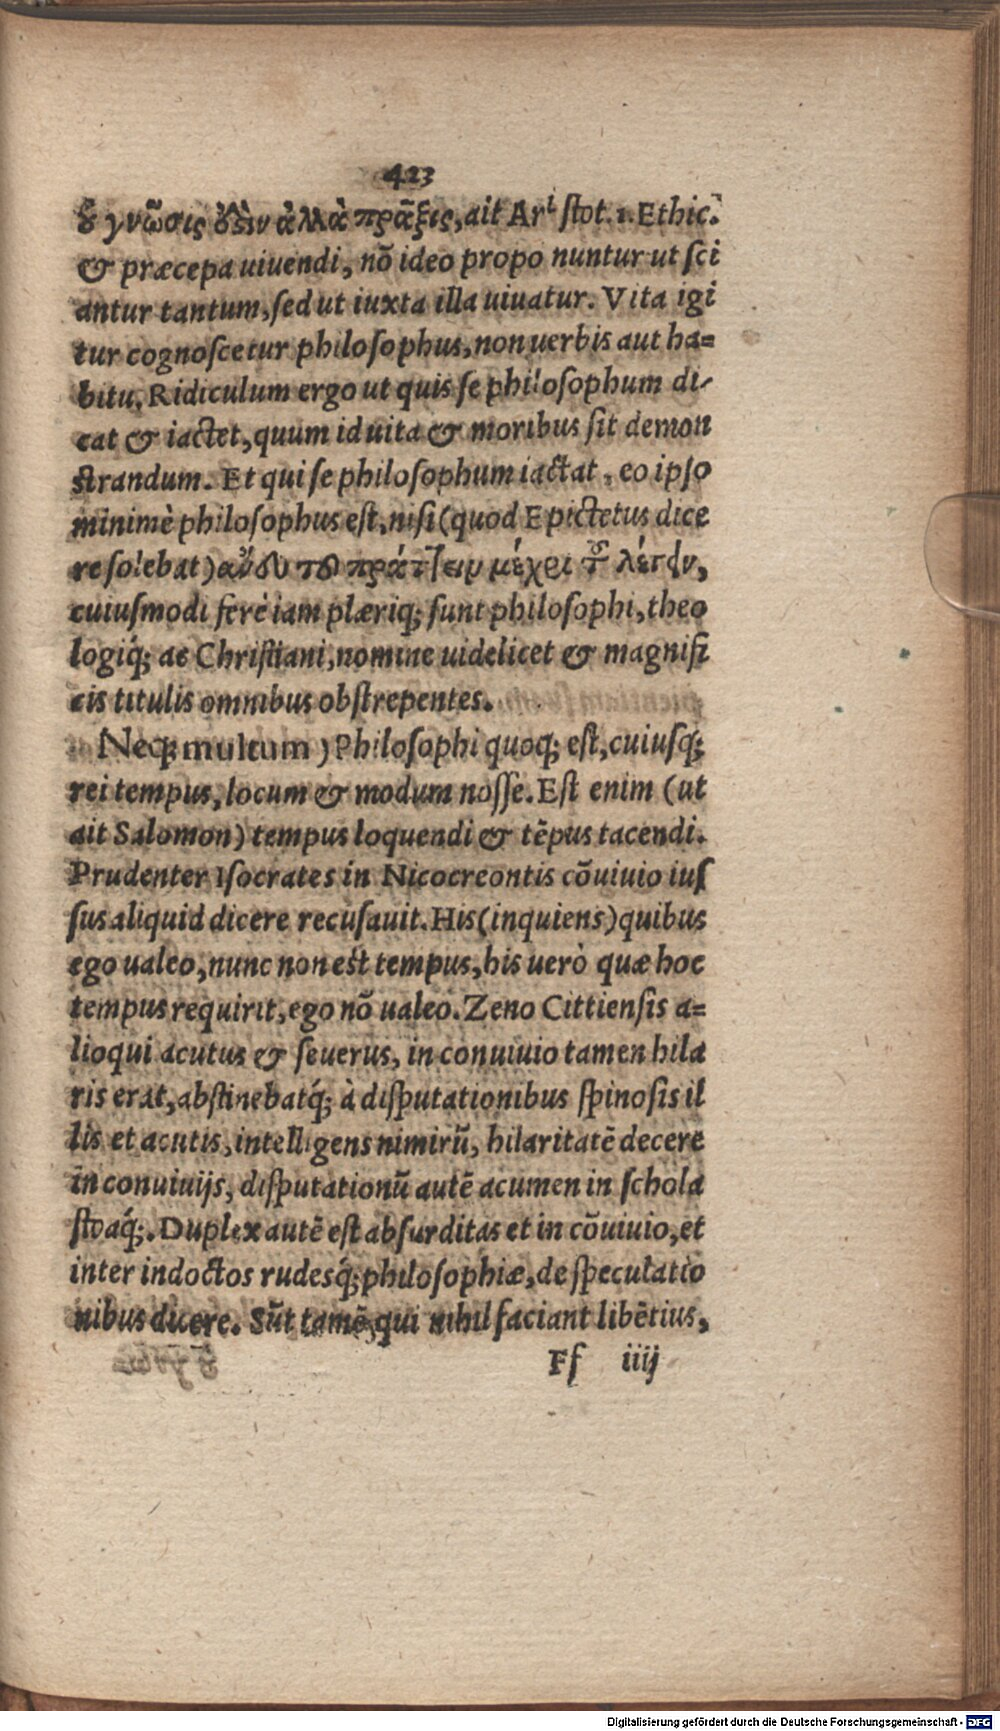 423
ȣ γνῶσις ὅτιν ἀλλὰ πρᾶξις, ait Ariſtot. 1. Ethic.
& præcepa uiuendi, nō ideo propo nuntur ut ſci
antur tantum, ſed ut iuxta illa uiuatur. Vita igi
tur cognoſcetur philoſophus, non uerbis aut ha=
bitu. Ridiculum ergo ut quis ſe philoſophum di-
cat & iactet, quum id uita & moribus ſit demon
ſtrandum. Et qui ſe philoſophum iactat, eo ipſo
minimè philoſophus eſt, niſi (quod Epictetus dice
re ſolebat) τȣ πράττειν μέχρι τȣ͂ λέγειν,
cuiuſmodi ferè iam plæriq; ſunt philoſophi, theo
logiq́; ac Chriſtiani, nomine uidelicet & magnifi
cis titulis omnibus obſtrepentes.
Neq; multum) Philoſophi quoq; eſt, cuiuſq;
rei tempus, locum & modum noſſe. Eſt enim (ut
ait Salomon) tempus loquendi & tēpus tacendi.
Prudenter Iſocrates in Nicocreontis cōuiuio iuſ
ſus aliquid dicere recuſauit. His (inquiens) quibus
ego ualeo, nunc non eſt tempus, his uerò quæ hoc
tempus requirit, ego nō ualeo. Zeno Cittienſis a=
lioqui acutus & ſeuerus, in conuiuio tamen hila
ris erat, abſtinebatq́; à diſputationibus ſpinoſis il
lis et acutis, intelligens nimirū, hilaritatē decere
in conuiuijs, diſputationū autē acumen in ſchola
ſtoaq́;. Duplex autē eſt abſurditas et in cōuiuio, et
inter indoctos rudesq́; philoſophiæ, de ſpeculatio
nibus dicere. Sūt tamē, qui nihil faciant libētius,
Ff iiij
Digitalisierung gefördert durch die Deutsche Forschungsgemeinschaft - DFG